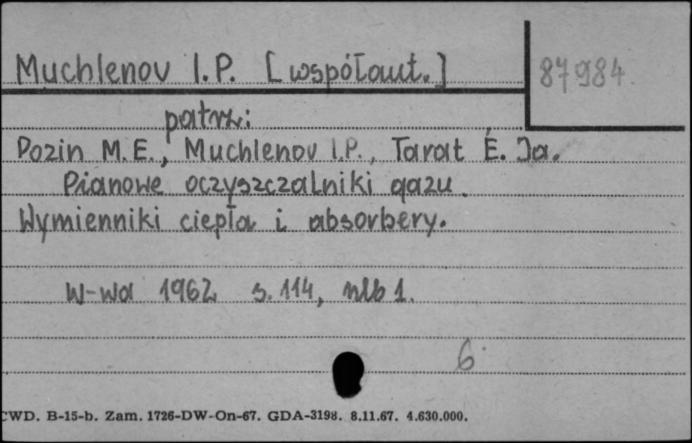 Muchlenov I.P. [współaut.]
87984
patrz:
Pozin M.E., Muchlenov I.P., Tarat É. Ja.
Pianowe oczyszczalniki gazu.
Wymienniki ciepła i absorbery.
W-wa 1962 s. 114, nlb 1.
6
CWD. B-15-b. Zam. 1726-DW-On-67. GDA-3198. 8.11.67. 4.630.000.